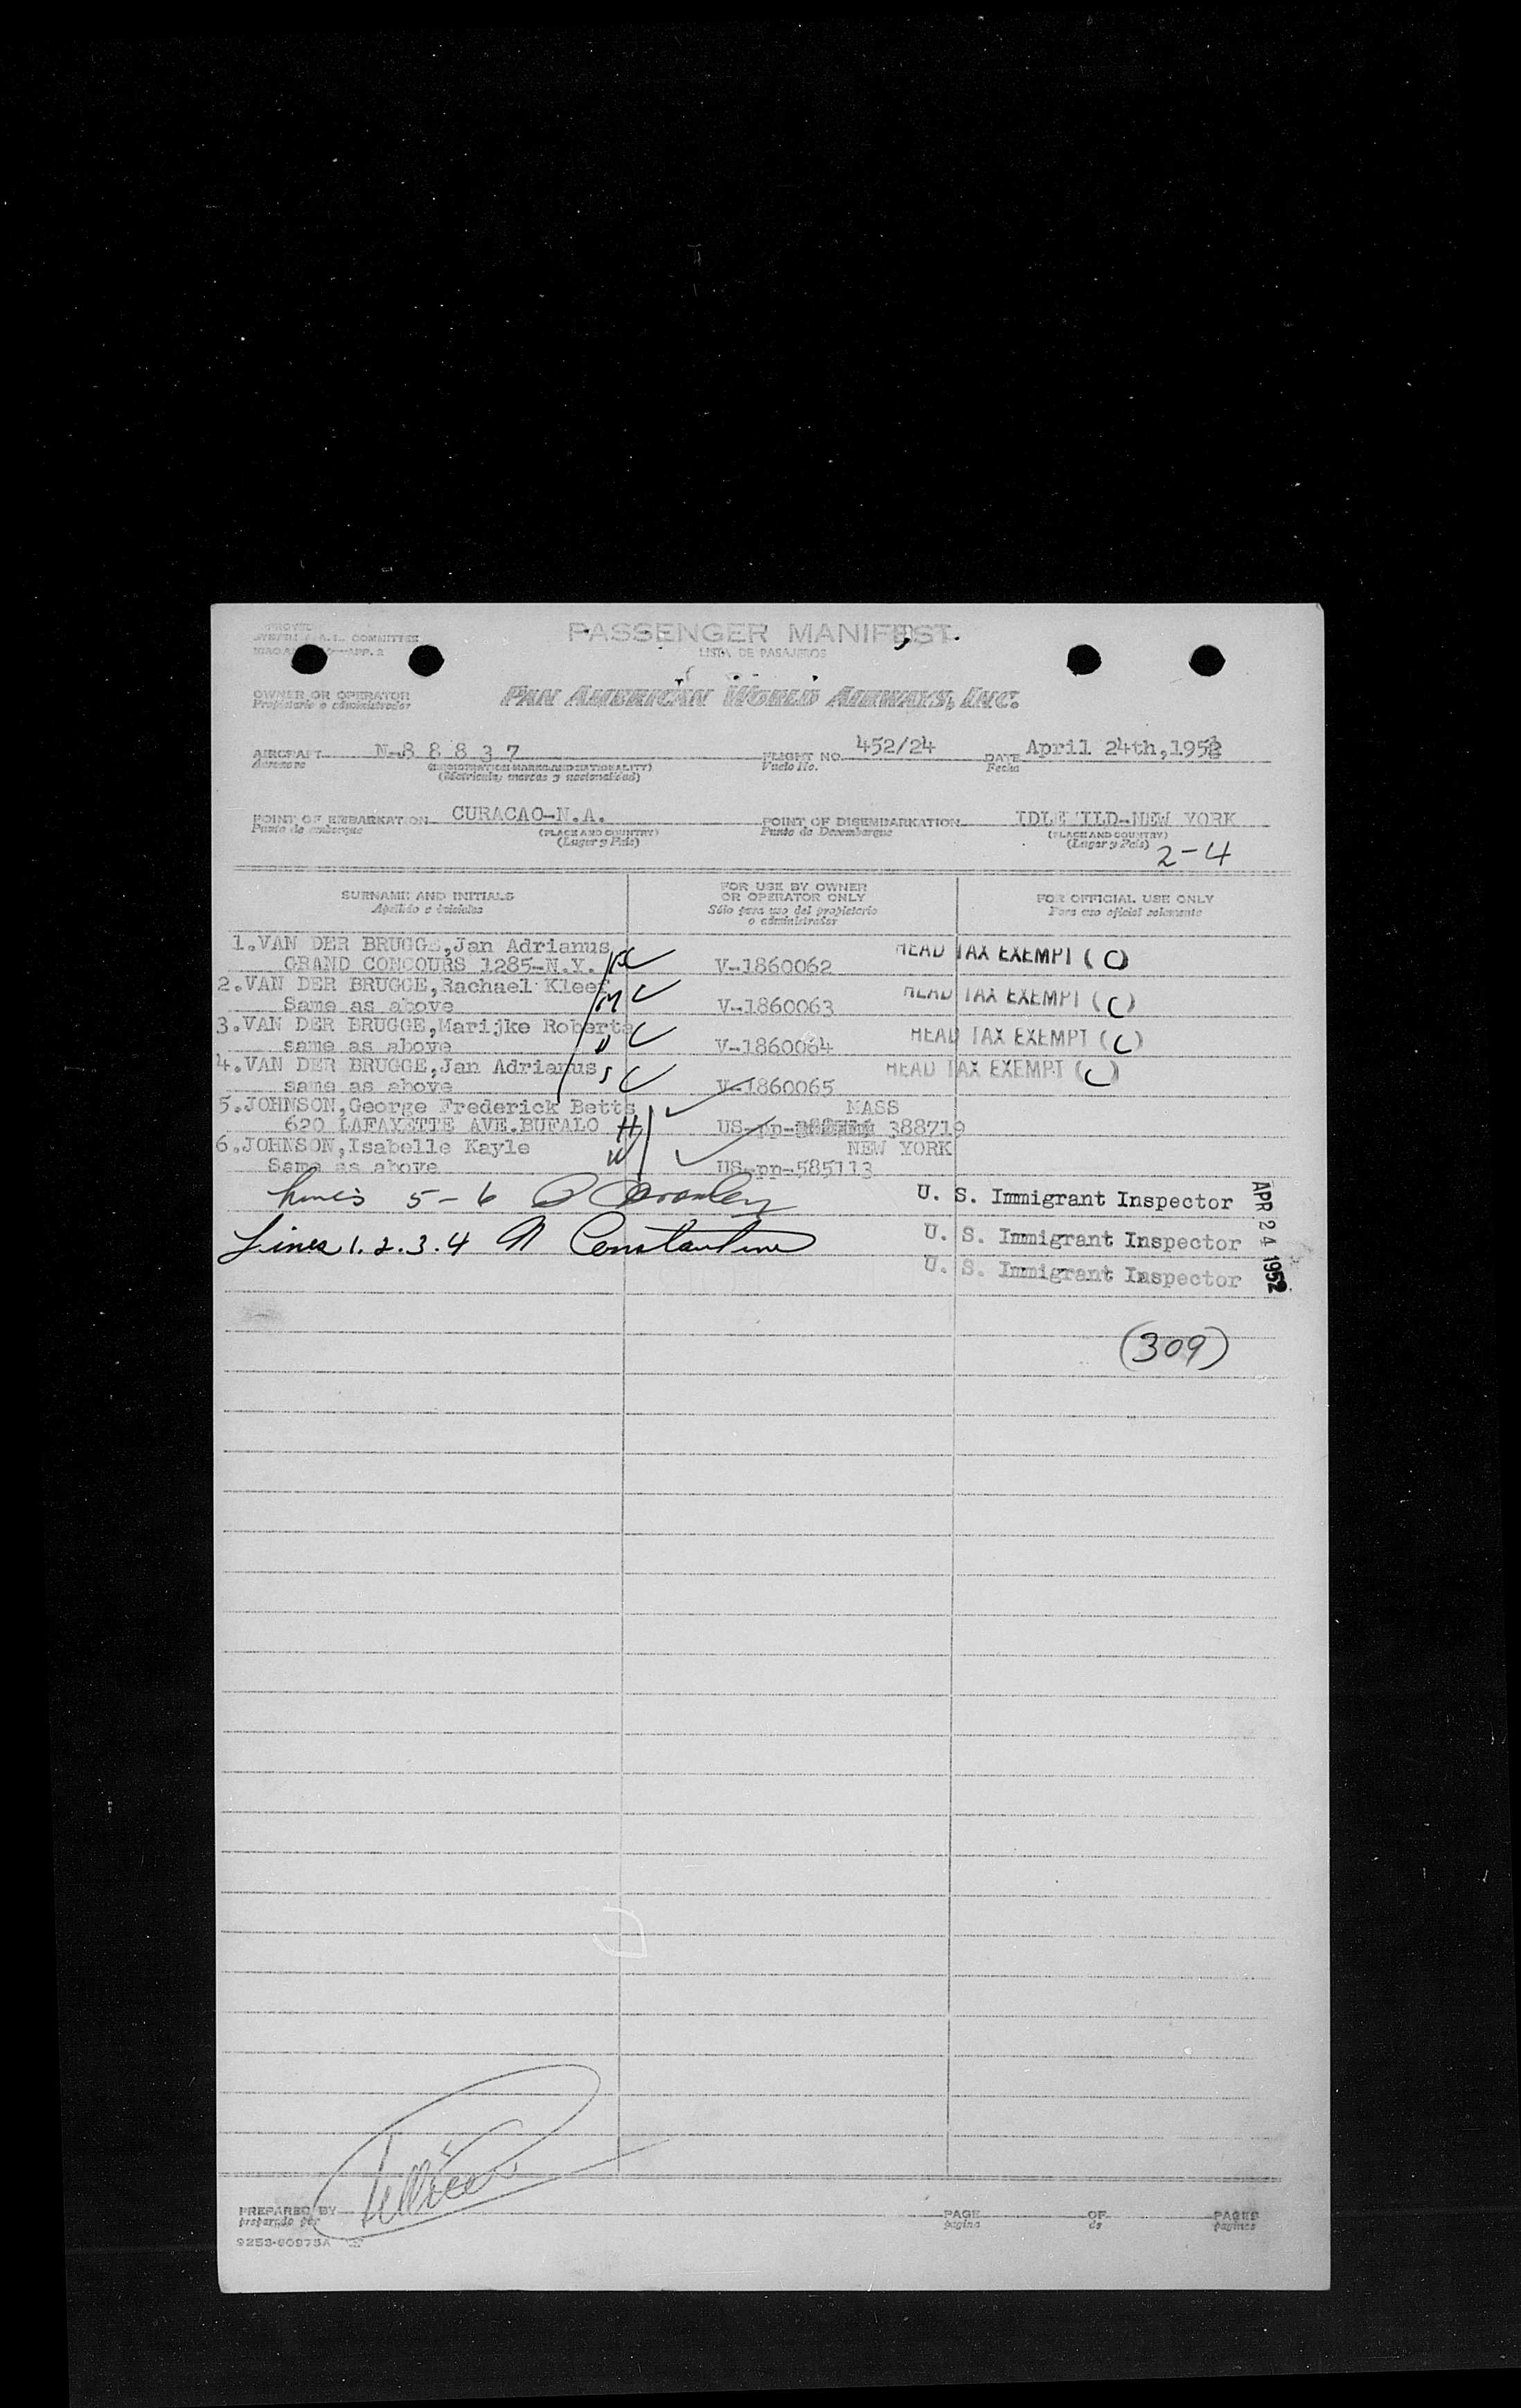 PASSENGER MANIFEST
LISTA DE PASAJEROS
OWNER OR OPERATOR
Propietario o administrador
PAN AMERICAN WORLD AIRWAYS, INC.
AIRCRAFT N-88837 FLIGHT NO. 452/24 DATE April 24th,1952
Aeronave (REGISTRATION MARKS AND NATIONALITY) Vuelo No. Fecha
(Matricula, marcas y nacionalidad)
POINT OF EMBARKATION CURACAO-N.A. POINT OF DISEMBARKATION IDLEWILD-NEW YORK
Punto de embarque (PLACE AND COUNTRY) Punto de Desembarque (PLACE AND COUNTRY)
(Lugar y País) (Lugar y País) 2-4
SURNAME AND INITIALS FOR USE BY OWNER OR OPERATOR ONLY FOR OFFICIAL USE ONLY
Apellido e iniciales Sólo para uso del propietario o administrador Para uso oficial solamente
1.VAN DER BRUGGE,Jan Adrianus HEAD TAX EXEMPT (C)
GRAND CONCOURS 1285-N.Y. V-1860062
2.VAN DER BRUGGE,Rachael Kleef HEAD TAX EXEMPT (C)
Same as above M V-1860063
3.VAN DER BRUGGE,Marijke Roberta HEAD TAX EXEMPT (C)
same as above V-1860064
4.VAN DER BRUGGE,Jan Adrianus S HEAD TAX EXEMPT (C)
same as above V-1860065
5.JOHNSON,George Frederick Betts MASS
620 LAFAYETTE AVE.BUFALO H US-pp- 388719
6.JOHNSON,Isabelle Kayle NEW YORK
Same as above W US-pp-585113
Lines 5-6 U. S. Immigrant Inspector
Lines 1.2.3.4 Constantine U. S. Immigrant Inspector
U. S. Immigrant Inspector
APR 24 1952
(309)
PREPARED BY PAGE OF PAGES
preparado por pagina de paginas
9253-60975A